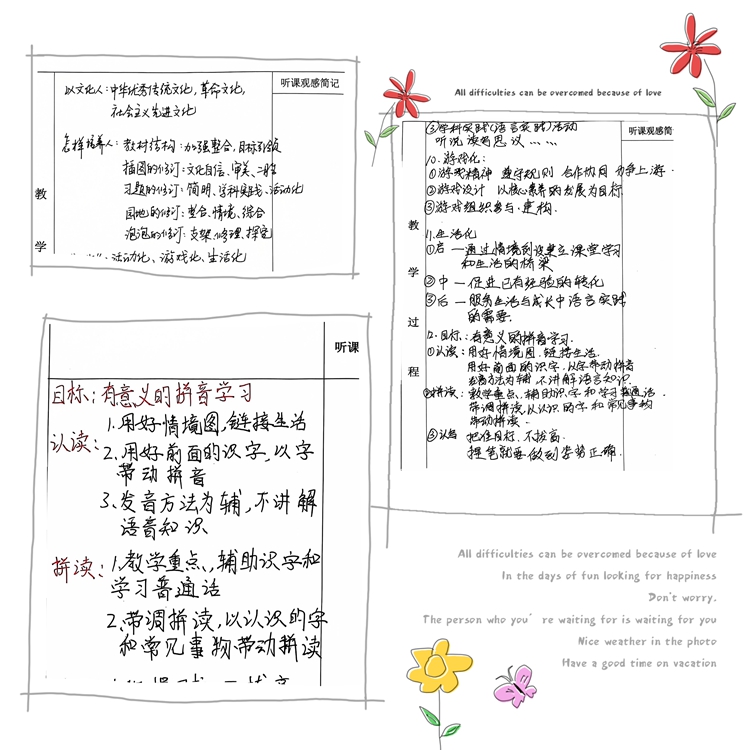 听课观感简记
以文化人:中华优秀传统文化,革命文化,
社会主义先进文化
怎样培养人:教材结构:加强整合,目标引领
插图的修订:文化自信、审美、二胎
习题的修订:简明、学科实践、活动化
园地的修订:整合、情境、综合
泡泡的修订:支架、梳理、探究
活动化、游戏化、生活化
教
学
All difficulties can be overcomed because of love
听课观感简
③学科实践(语言实践)活动
听说读写思议……
10.游戏化:
①游戏精神 遵守规则 合作协同 力争上游.
②游戏设计 以核心素养的发展为目标
③游戏组织参与、建构.
11.生活化
①启—通过情境创设建立课堂学习
和生活的桥梁
②中—促进已有经验的转化
③后—服务生活与成长中语言实践
的需要.
12.目标:有意义的拼音学习.
①认读:用好情境图.链接生活.
用好前面的识字,以字带动拼音
发音方法为辅,不讲解语音知识.
②拼读:教学重点、辅助识字和学习普通话.
带调拼读,以认识的字和常见事物
带动拼读.
把住目标,不拔高.
提笔就要做到姿势正确.
教
学
过
程
听课
目标:有意义的拼音学习
认读:1.用好情境图,链接生活
2.用好前面的识字,以字
带动拼音
3.发音方法为辅,不讲解
语音知识.
拼读:1.教学重点、辅助识字和
学习普通话
2.带调拼读,以认识的字
和常见事物带动拼读
All difficulties can be overcomed because of love
In the days of fun looking for happiness
Don't worry.
The person who you're waiting for is waiting for you
Nice weather in the photo
Have a good time on vacation